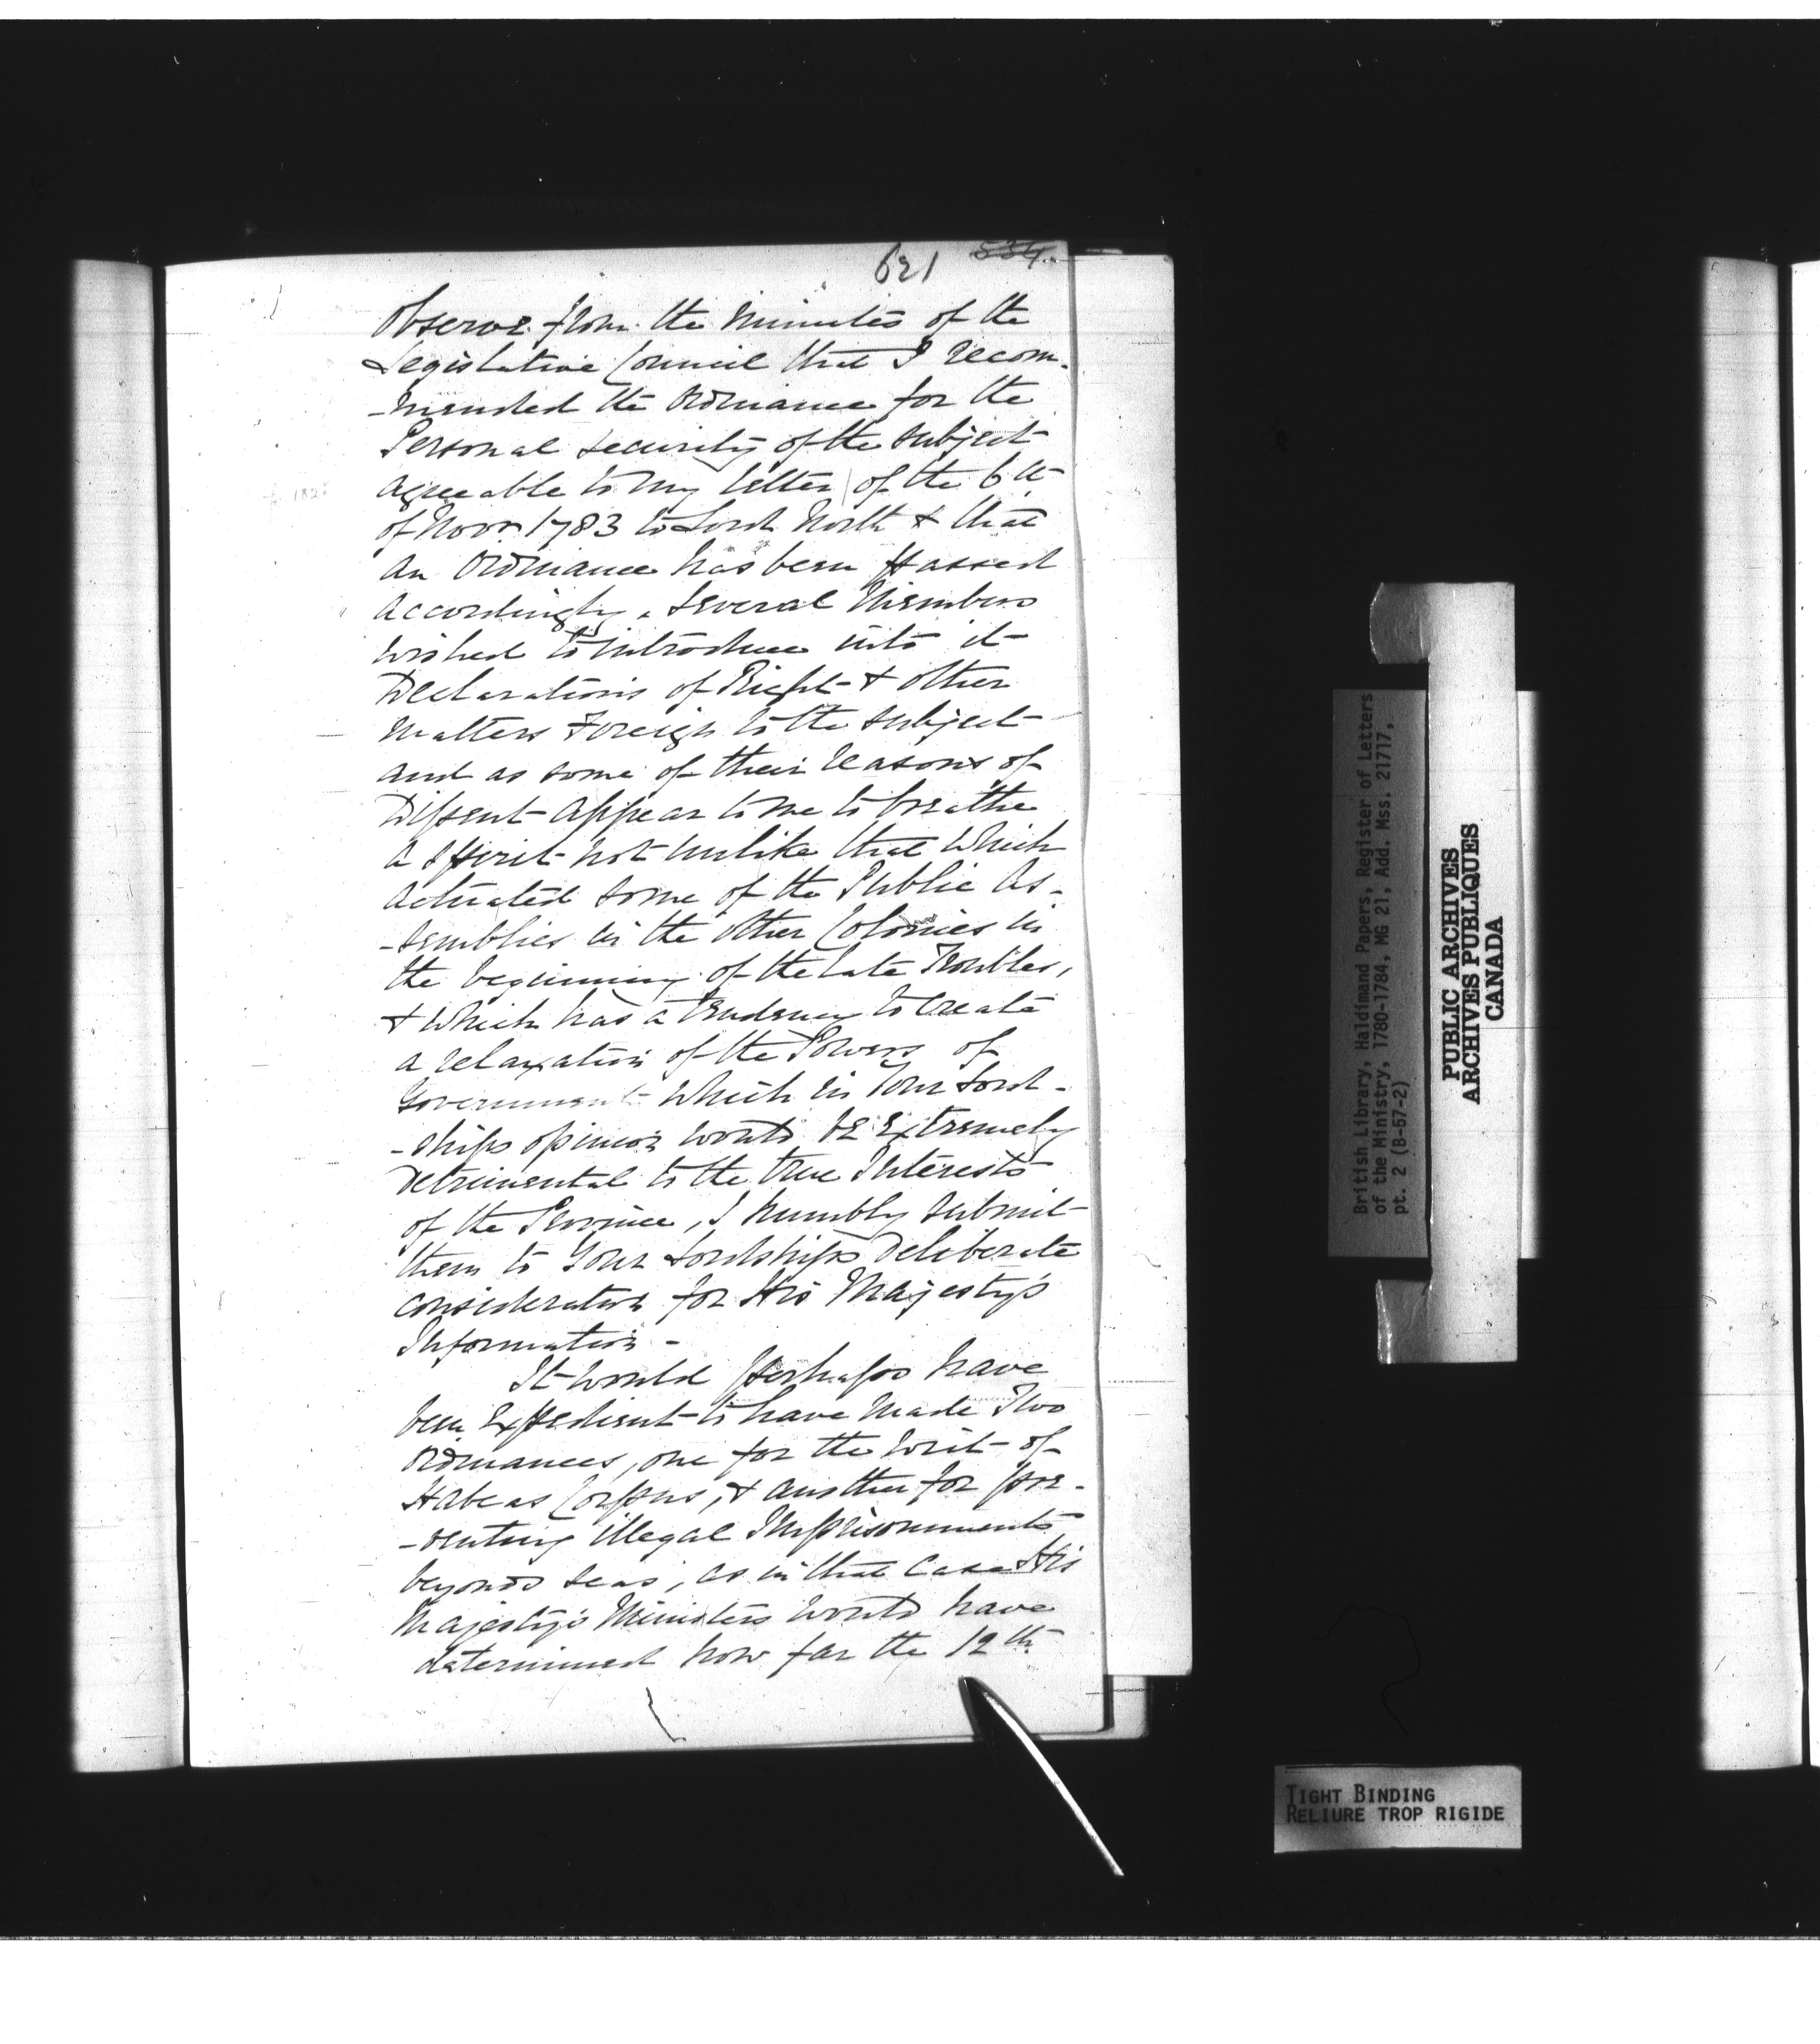 621 534
Observe from the Minutes of the
Legislative Council that I recom-
-mended the Ordinance for the
Personal Security of the Subject
agreeable to my letter of the 6th
of Novr 1783 to Lord North & that
an Ordinance has been passed
accordingly. Several Members
wished to introduce into it
Declarations of Right & other
matters Foreign to the Subject
and as some of their reasons of
Dissent appear to me to breathe
a spirit not unlike that which
actuated some of the Public As-
-semblies in the other Colonies in
the beginning of the late Troubles,
& which has a tendency to create
a relaxation of the Powers of
Government which in Your Lord-
-ships opinion would be Extremely
Detrimental to the true Interests
of the Province, I humbly submit
them to Your Lordships Deliberate
consideration for His Majesty's
Information -
It would perhaps have
been Expedient to have made Two
Ordinances, one for the Writ of
Habeas Corpus, & another for pre-
-venting illegal Imprisonments
beyond seas, as in that Case His
Majesty's Ministers would have
determined how far the 12th
British Library, Haldimand Papers, Register of Letters
of the Ministry, 1780-1784, MG 21, Add. Mss. 21717,
pt. 2 (B-57-2)
PUBLIC ARCHIVES
ARCHIVES PUBLIQUES
CANADA
TIGHT BINDING
RELIURE TROP RIGIDE